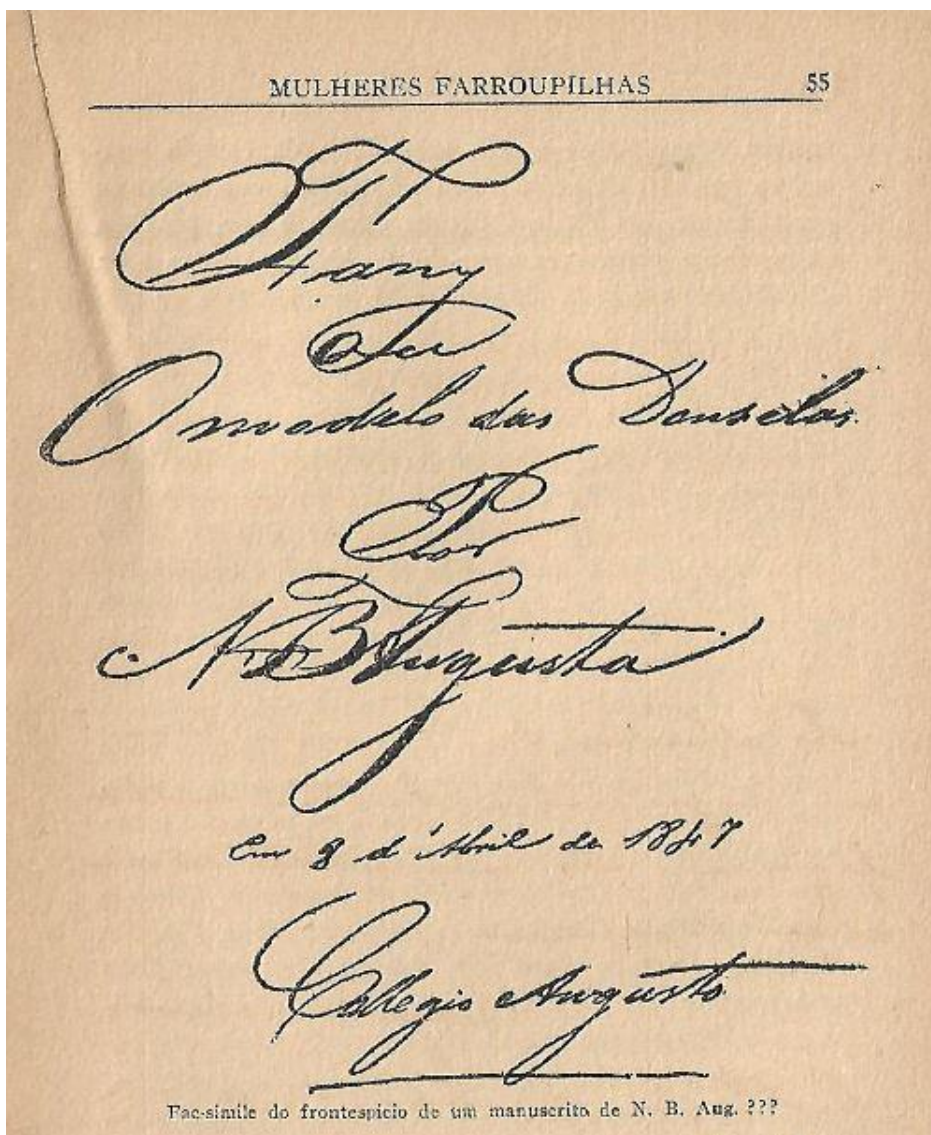 MULHERES FARROUPILHAS 55
Fany
Ou
O modelo das Donselas
Por
N B Augusta
Em 8 d'Abril de 1847
Collegio Augusto
Fac-simile do frontespicio de um manuscrito de N. B. Aug. ???